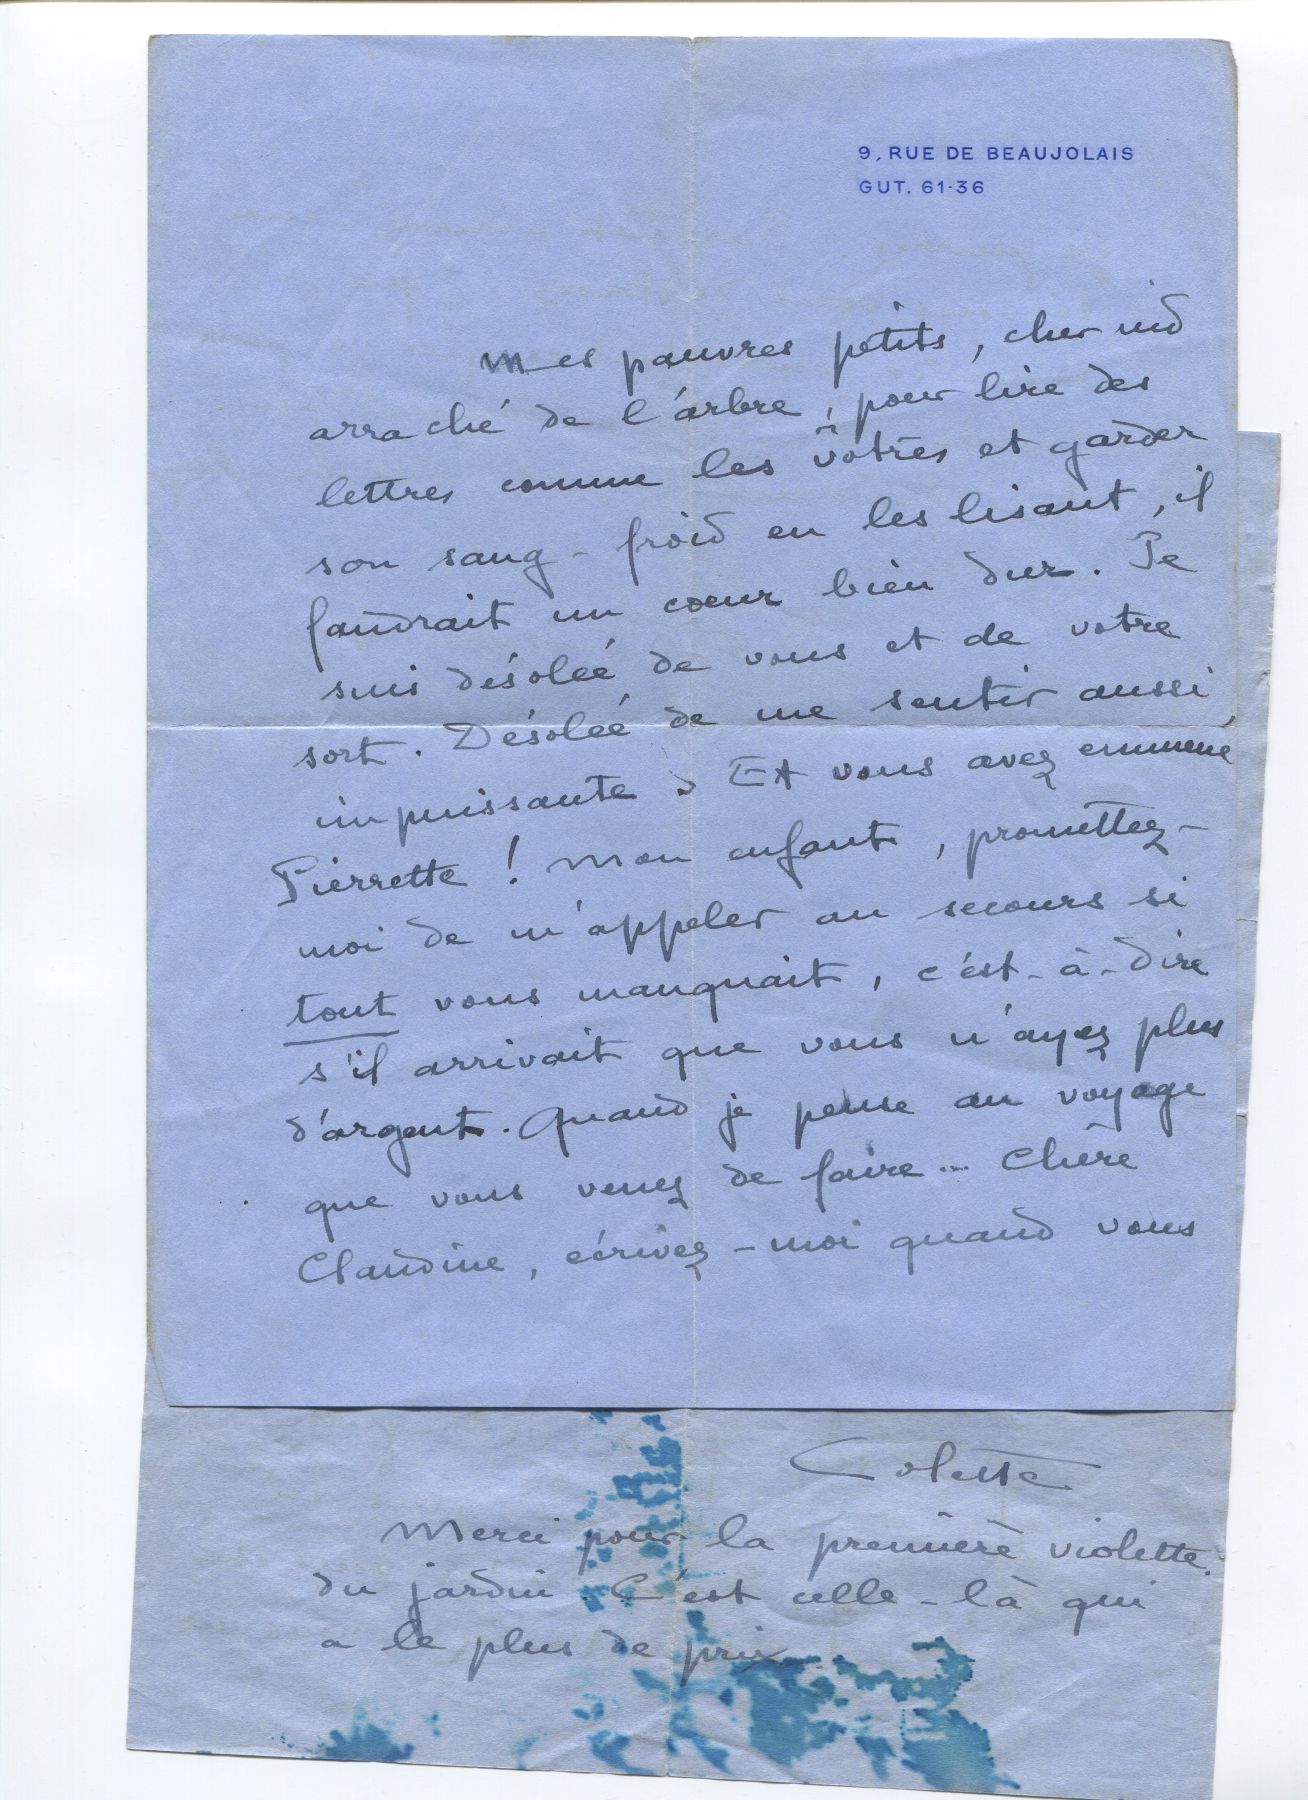 9, RUE DE BEAUJOLAIS
GUT. 61-36
Mes pauvres petits, cher nid
arraché de l'arbre, pour lire des
lettres comme les vôtres et garder
son sang-froid en les lisant, il
faudrait un cœur bien dur. Je
suis désolée de vous et de votre
sort. Désolée de me sentir aussi
impuissante. Et vous avez emmené
Pierrette ! Mon enfant, promettez-
moi de m'appeler au secours si
tout vous manquait, c'est-à-dire
s'il arrivait que vous n'ayez plus
d'argent. Quand je pense au voyage
que vous venez de faire... Chère
Claudine, écrivez-moi quand vous
Colette
Merci pour la première violette
du jardin. C'est celle-là qui
a le plus de prix